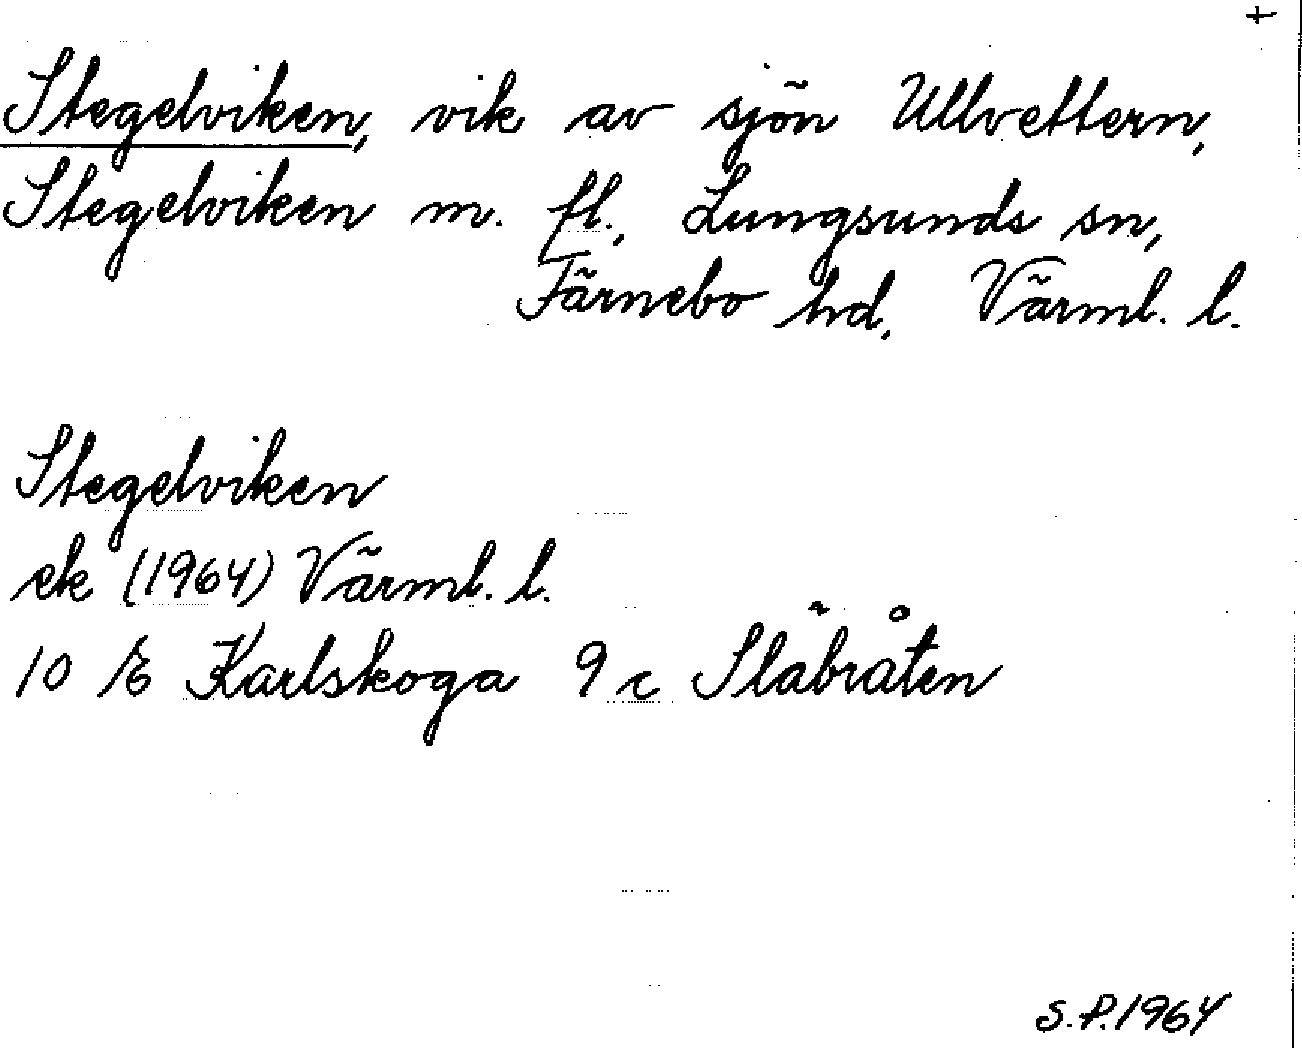 +
Stegelviken, vik av sjön Ullvettern,
Stegelviken m. fl., Lungsunds sn,
Färnebo hd, Värml. l.
Stegelviken
ek (1964) Värml. l.
10 E Karlskoga 9 c Släbråten
S.P. 1964